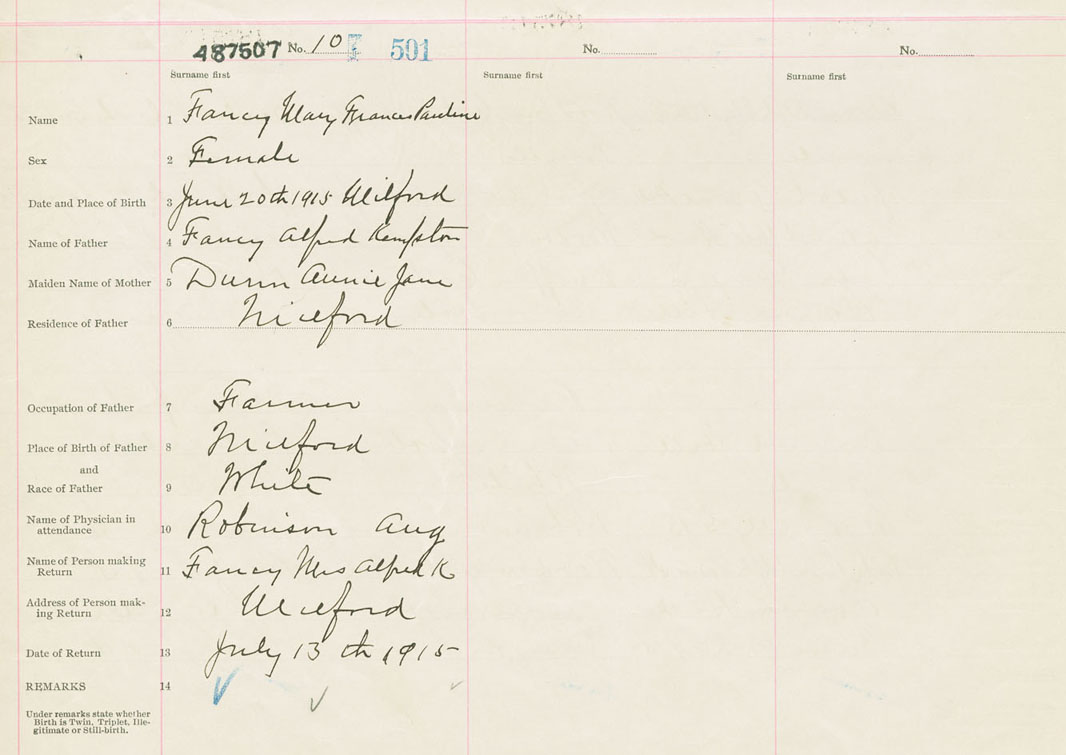 487507 No. 10 501 No. No.
Surname first Surname first Surname first
Name 1 Fancy Mary Frances Pauline
Sex 2 Female
Date and Place of Birth 3 June 20th 1915 Milford
Name of Father 4 Fancy Alfred Kempton
Maiden Name of Mother 5 Dunn Annie Jane
Residence of Father 6 Milford
Occupation of Father 7 Farmer
Place of Birth of Father 8 Milford
and
Race of Father 9 White
Name of Physician in
attendance 10 Robinson Aug
Name of Person making
Return 11 Fancy Mrs Alfred K
Address of Person mak-
ing Return 12 Milford
Date of Return 13 July 13th 1915
REMARKS 14
Under remarks state whether
Birth is Twin, Triplet, Ille-
gitimate or Still-birth.